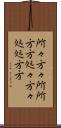 所々方々所所
方方処々方々
処処方方